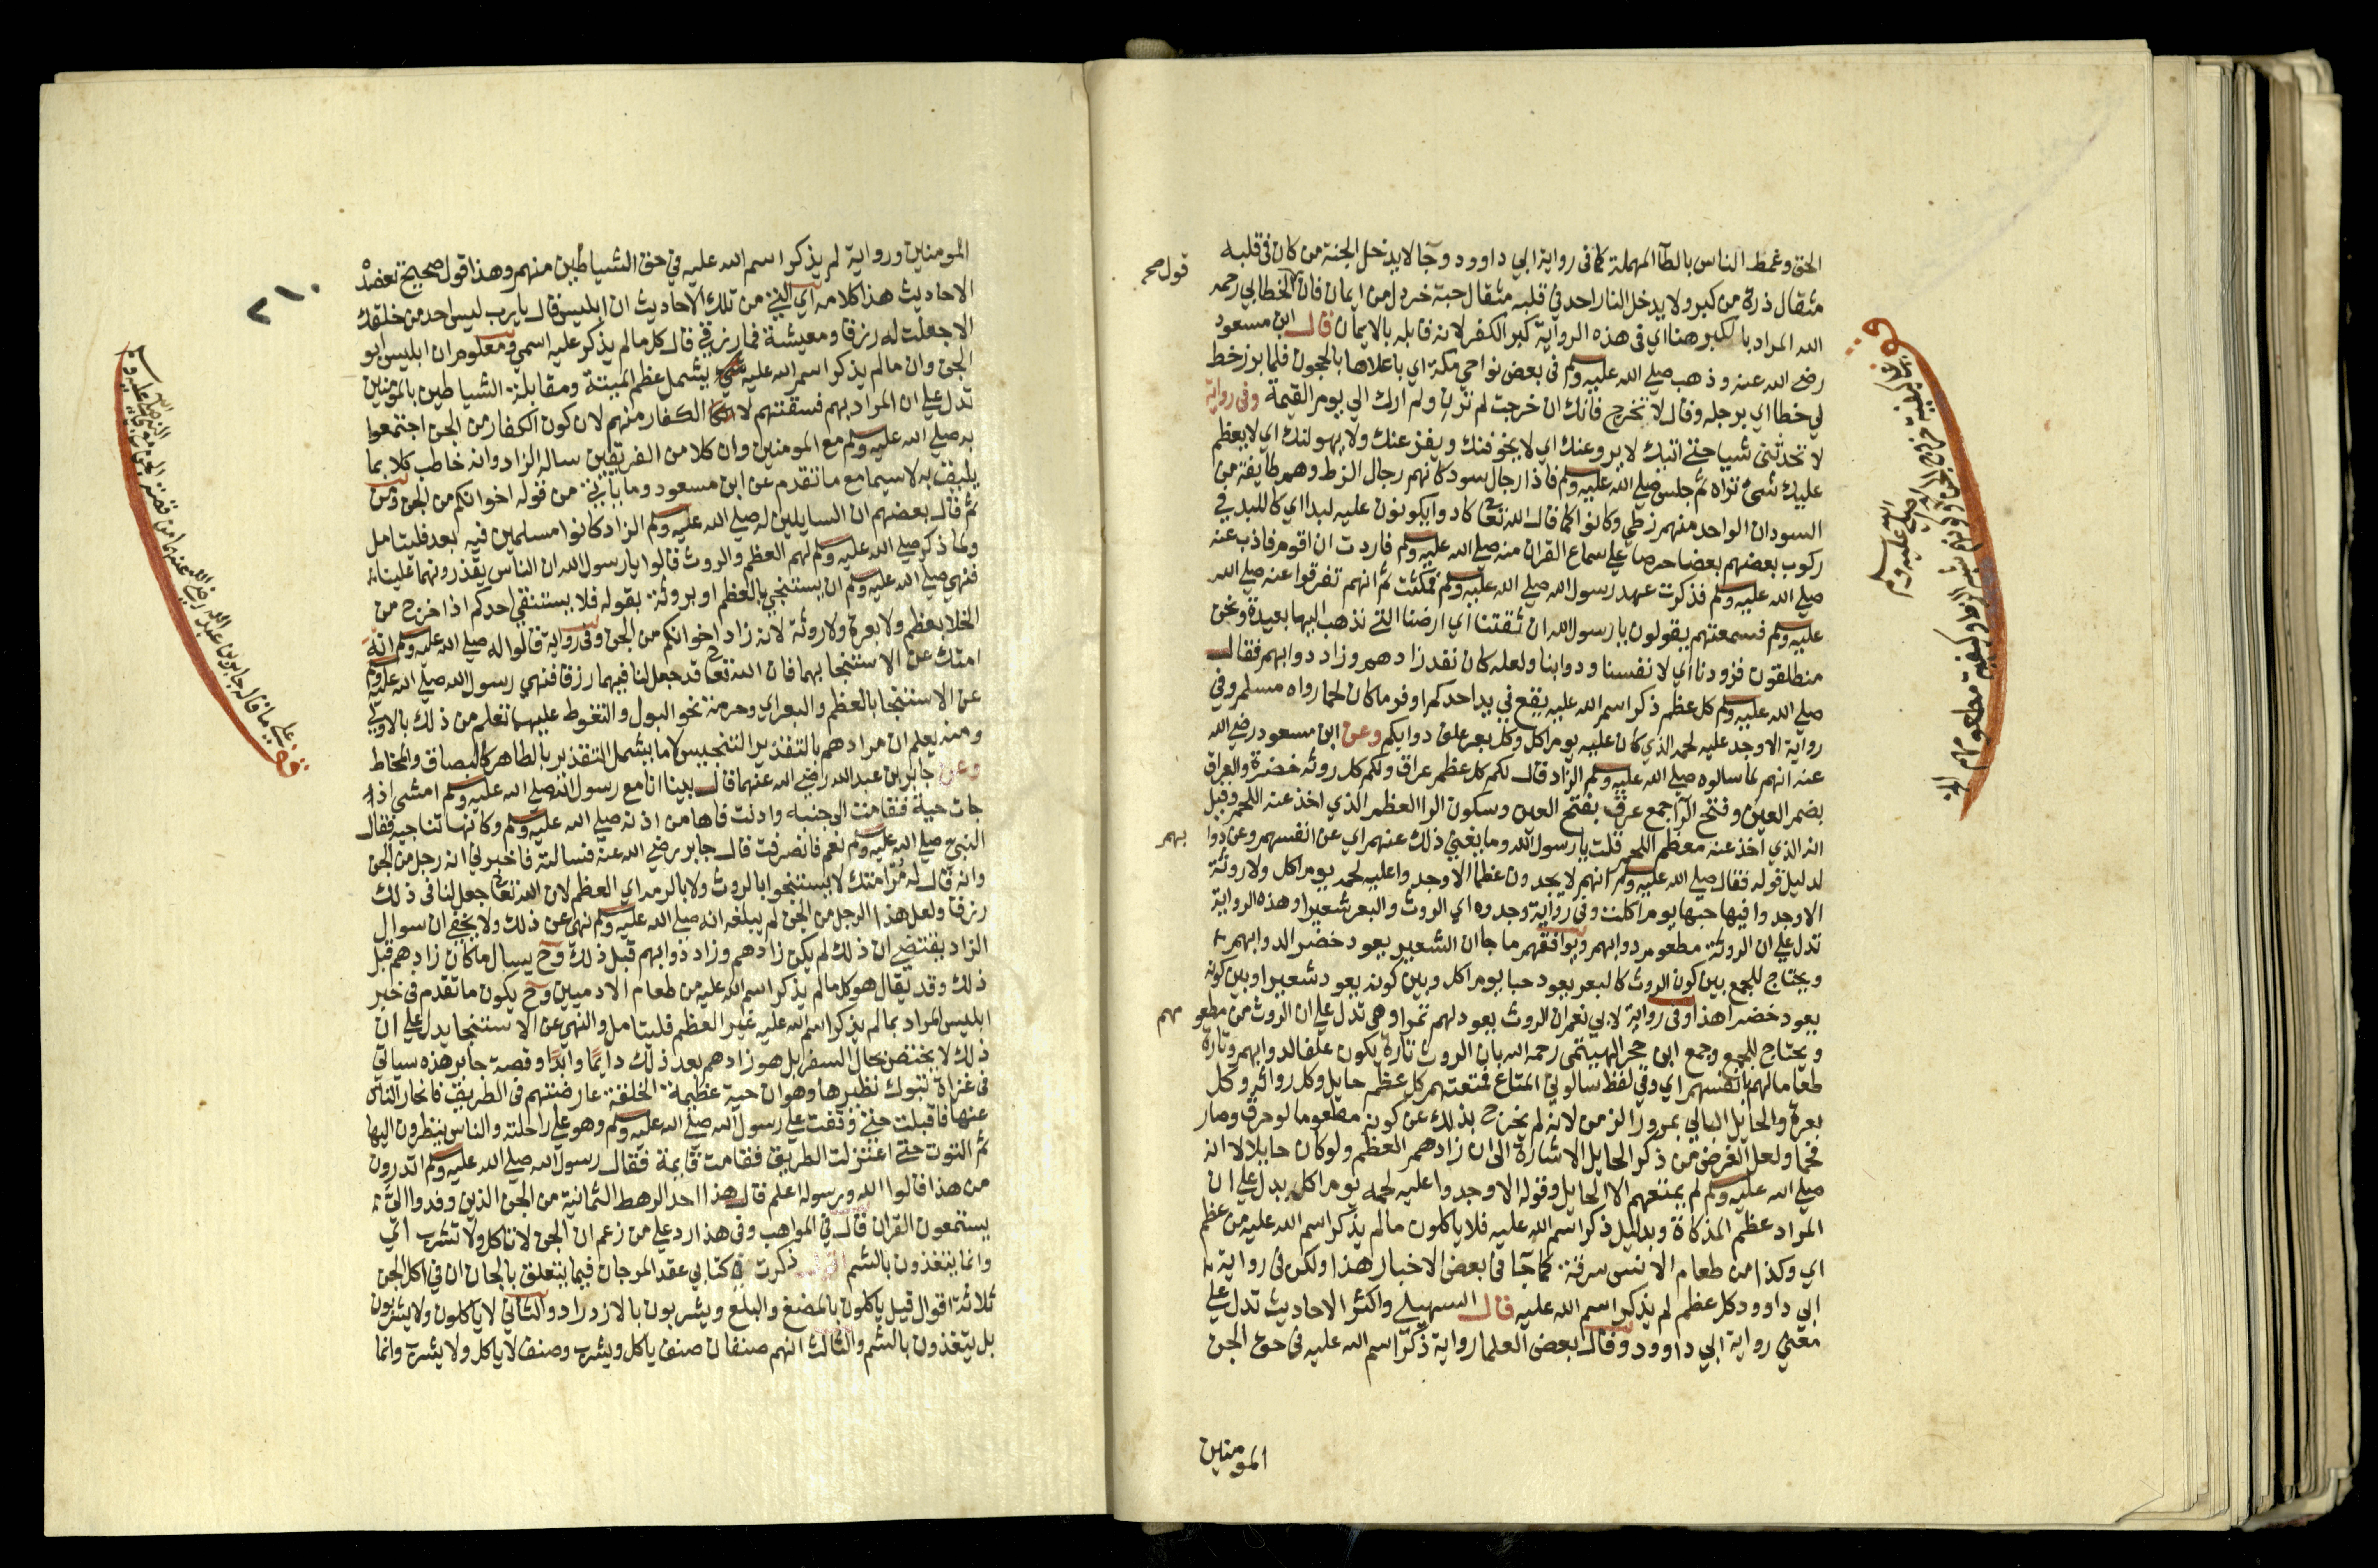 الحق وغمط الناس بالطآ المهملة كما فى رواية ابي داوود وجآ لا يدخل الجنة من كان فى قلبه
مثقال ذرة من كبر ولا يدخل النار احد في قلبه مثقال حبة خردل من ايمان قال الخطابي رحمه
الله المراد بالكبر هنا اي فى هذه الرواية كبر الكفر لانه قابله بالايمان قال ابن مسعود
رضي الله عنه وذهب صلي الله عليه وسلم فى بعض نواحي مكة اي باعلاها بالحجون فلما برز خط
لي خطا اي برجله وقال لا تخرج فانك ان خرجت لم ترن ولم ارك الي يوم القيمة وفى رواية
لا تحدثن شيا حتي اتيك لا يروعنك اي لا يخوفنك ويفزعنك ولا يهولنك اي لا يعظم
عليك شئ تراه ثم جلس صلي الله عليه وسلم فاذا رجال سود كانهم رجال الزط وهم طايفة من
السودان الواحد منهم زطي وكانوا كما قال الله تعا كادوا يكونون عليه لبدا اي كاللبد في
ركوب بعضهم بعضا حرصا علي سماع القران منه صلي الله عليه وسلم فاردت ان اقوم فاذب عنه
صلي الله عليه وسلم فذكرت عهد رسول الله صلي الله عليه وسلم فمكثت ثم انهم تفرقوا عنه صلي الله
عليه وسلم فسمعتهم يقولون يا رسول الله ان شقتنا اي ارضنا التي نذهب اليها بعيدة ونحن
منطلقون فزودنا اي لانفسنا ودوابنا ولعله كان نفد زادهم وزاد دوابهم فقال
صلي الله عليه وسلم كل عظم ذكر اسم الله عليه يقع في يد احدكم اوفر ما كان لحما رواه مسلم وفي
رواية الا وجد عليه لحمه الذي كان عليه يوم اكل وكل بعر علف دوابكم وعن ابن مسعود رضي الله
عنه انهم لما سالوه صلي الله عليه وسلم الزاد قال لكم كل عظم عراق ولكم كل روثه خضرة والعراق
بضم العين وفتح الرآ جمع عرق بفتح العين وسكون الرا العظم الذي اخذ عنه اللحم وقيل
انه الذي اخذ عنه معظم اللحم قلت يا رسول الله وما يغني ذلك عنهم اي عن انفسهم وعن دوا
بهم
لدليل قوله فقال صلي الله عليه وسلم انهم لا يجدون عظما الا وجدوا عليه لحمه يوم اكل ولا روثة
الا وجدوا فيها حبها يوم اكلت وفى رواية وجدوه اي الروث والبعر شعيرا وهذه الرواية
تدل علي ان الروثة مطعوم دوابهم ويوافقهم ما جا ان الشعير يعود خضر الدوابهم
ويحتاج للجمع بين كون الروث كالبعر يعود حبا يوم اكل وبين كونه يعود شعيرا وبين كونه
يعود خضرا هذا وفى رواية لابي نعم ان الروث يعود لهم تمرا وهى تدل علي ان الروث من مطعو
مهم
ويحتاج للجمع وجمع ابن حجر الهيتمى رحمه الله بان الروث تارة يكون علفا لدوابهم وتارة
طعاما لهم بانفسهم اي وفي لفظ سالوني المتاع فمتعتهم كل عظم حايل وكل روثة وكل
بعرة والحايل البالي بمرور الزمن لانه لم يخرج بذلك عن كونه مطعوما لو حرق وصار
فحما ولعل الغرض من ذكر الحايل الاشارة الى ان زادهم العظم ولو كان حايلا لا انه
صلي الله عليه وسلم لم يمتعهم الا الحايل وقوله الا وجدوا عليه لحمه يوم اكل يدل علي ان
المراد عظم المذكاة وبدليل ذكر اسم الله عليه فلا ياكلون ما لم يذكر اسم الله عليه من عظم
اي وكذا من طعام الانس سرقة كما جآ فى بعض الاخبار هذا ولكن فى رواية
ابي داوود كل عظم لم يذكر اسم الله عليه قال السهيلي واكثر الاحاديث تدل علي
معني رواية ابي داوود وقال بعض العلما رواية ذكر اسم الله عليه فى حق الجن
المومنين
قول صح
المومنين ورواية لم يذكر اسم الله عليه في حق الشياطين منهم وهذا قول صحيح تعضده
الاحاديث هذا كلامه اي التي من تلك الاحاديث ان ابليس قال يا رب ليس احد من خلقك
الا جعلت له رزقا ومعيشة فما رزقي قال كل ما لم يذكر عليه اسمي ومعلوم ان ابليس ابو
الجن وان ما لم يذكر اسم الله عليه يشمل عظم الميتة ومقابلة الشياطين بالمومنين
تدل علي ان المراد بهم فسقتهم لا الكفار منهم لان كون الكفار من الجن اجتمعوا
به صلي الله عليه وسلم مع المومنين وان كلا من الفريقين ساله الزاد وانه خاطب كلا بما
يليق به لا سيما مع ما تقدم عن ابن مسعود وما ياتي من قوله اخوانكم من الجن ومن
ثم قال بعضهم ان السايلين له صلي الله عليه وسلم الزاد كانوا مسلمين فيه بعد فليتامل
ولما ذكر صلي الله عليه وسلم لهم العظم والروث قالوا يا رسول الله ان الناس يقذرونهما علينا
فنهي صلي الله عليه وسلم ان يستنجي بالعظم او بروثة بقوله فلا يستنقي احدكم اذا خرج من
الخلا بعظم ولا بعرة ولا روثة لانه زاد اخوانكم من الجن وفى رواية قالوا له صلي الله عليه وسلم انه
امتك عن الاستنجا بهما فان الله تعا قد جعل لنا فيهما رزقا فنهي رسول الله صلي الله عليه وسلم
عن الاستنجا بالعظم والبعر اي وحرمة نحو البول والتغوط عليهما تعلم من ذلك بالاولي
ومنه يعلم ان مرادهم بالتقذير التنجيس لا ما يشمل التقذير بالطاهر كالبصاق والمخاط
وعن جابر بن عبد الله رضي الله عنهما قال بينا انا مع رسول الله صلي الله عليه وسلم امشي اذ
جات حية فقامت الى جنبه وادنت فاها من اذنه صلي الله عليه وسلم وكانها تناجيه فقال
النبي صلي الله عليه وسلم نعم فانصرفت قال جابر رضي الله عنه فسالته فاخبرني انه رجل من الجن
وانه قال له مر امتك لا يستنجوا بالروث ولا بالرمة اي العظم لان الله تعا جعل لنا فى ذلك
رزقا ولعل هذا الرجل من الجن لم يبلغه انه صلي الله عليه وسلم نهي عن ذلك ولا يخفي ان سوال
الزاد يقتضي ان ذلك لم يكن زادهم وزاد دوابهم قبل ذلك وح يسال ما كان زادهم قبل
ذلك وقد يقال هو كل ما لم يذكر اسم الله عليه من طعام الادميين وح يكون ما تقدم فى خبر
ابليس المراد بما لم يذكر اسم الله عليه غير العظم فليتامل والنهي عن الاستنجا يدل علي ان
ذلك لا يختص بحال السفر بل هو زادهم بعد ذلك دايما وابدا وقصة جابر هذه سياتي
فى غزاة تبوك نظيرها وهو ان حية عظيمة الخلقة عارضتهم فى الطريق فانحاز الناس
عنها فاقبلت حتي وقفت علي رسول الله صلي الله عليه وسلم وهو علي راحلته والناس ينظرون اليها
ثم التوت حتي اعتزلت الطريق فقامت قايمة فقال رسول الله صلي الله عليه وسلم اتدرون
من هذا قالوا الله ورسوله اعلم قال هذا احد الرهط الثمانية من الجن الذين وفدوا الي
يستمعون القران قال في المواهب وفى هذا رد علي من زعم ان الجن لا تاكل ولا تشرب اي
وانما يتغذون بالشم ذكرت في كتابي عقد المرجان فيما يتعلق بالجان ان في اكل الجن
ثلاثة اقوال قيل ياكلون بالمضغ والبلع ويشربون بالازدراد والثاني لا ياكلون ولا يشربون
بل يتغذون بالشم والثالث انهم صنفان صنف ياكل ويشرب وصنف لا ياكل ولا يشرب وانما
٢١٠